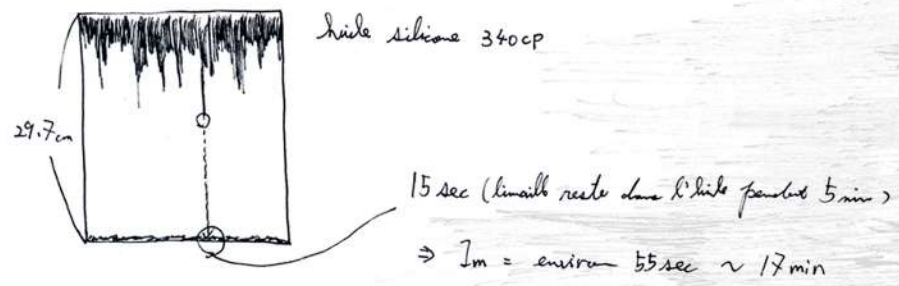 huile silicone 340cp
29.7cm
15 sec (limaille reste dans l'huile pendant 5 min)
⇒ 1m = environ 55sec ~ 17min